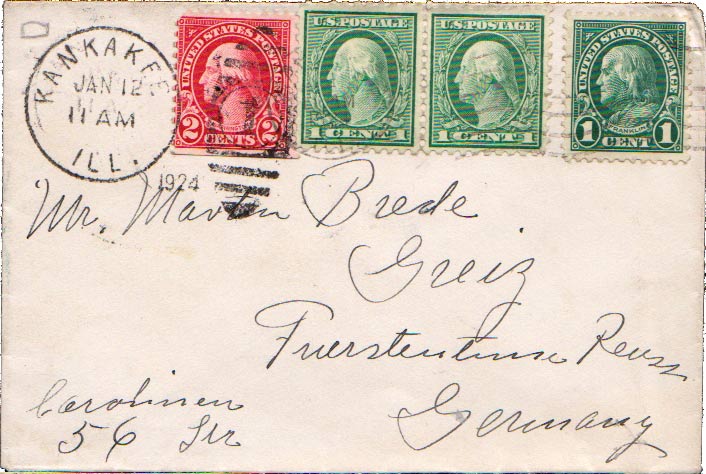 KANKAKEE
JAN 12
11 AM
ILL.
1924
UNITED STATES POSTAGE
2 CENTS 2
U.S. POSTAGE
1 CENT 1
U.S. POSTAGE
1 CENT 1
UNITED STATES POSTAGE
FRANKLIN
1 CENT 1
Mr. Martin Brede
Greiz
Fuerstentum Reuss
Germany
Carolinen
56 Str